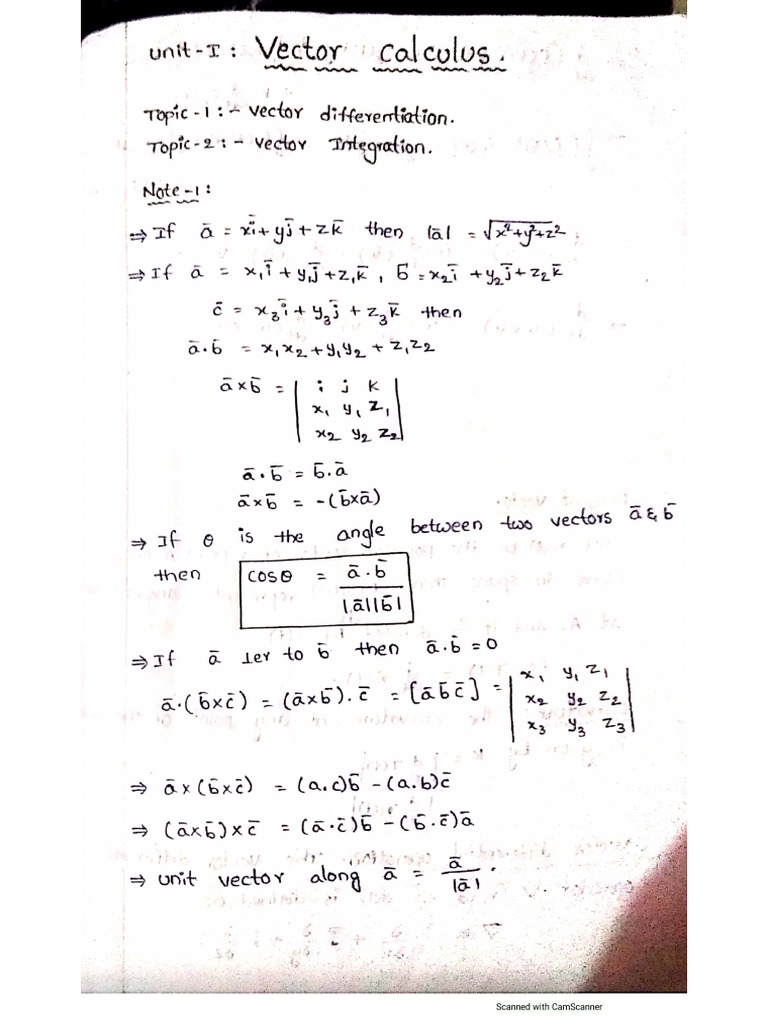 Unit-I : Vector calculus.
Topic-1 :- vector differentiation.
Topic-2 :- vector Integration.
Note-1:
⇒ If ā = xī + yj̄ + zk̄ then |ā| = √x²+y²+z²
⇒ If ā = x₁ī + y₁j̄ + z₁k̄ , b̄ = x₂ī + y₂j̄ + z₂k̄
c̄ = x₃ī + y₃j̄ + z₃k̄ then
ā·b̄ = x₁x₂ + y₁y₂ + z₁z₂
ā×b̄ = | i j k |
| x₁ y₁ z₁ |
| x₂ y₂ z₂ |
ā·b̄ = b̄·ā
ā×b̄ = -(b̄×ā)
⇒ If θ is the angle between two vectors ā & b̄
then cosθ = ā·b̄ / |ā||b̄|
⇒ If ā ⊥er to b̄ then ā·b̄ = 0
ā·(b̄×c̄) = (ā×b̄)·c̄ = [ā b̄ c̄] = | x₁ y₁ z₁ |
| x₂ y₂ z₂ |
| x₃ y₃ z₃ |
⇒ ā×(b̄×c̄) = (a.c)b̄ - (a.b)c̄
⇒ (ā×b̄)×c̄ = (ā·c̄)b̄ - (b̄·c̄)ā
⇒ unit vector along ā = ā / |ā| .
Scanned with CamScanner